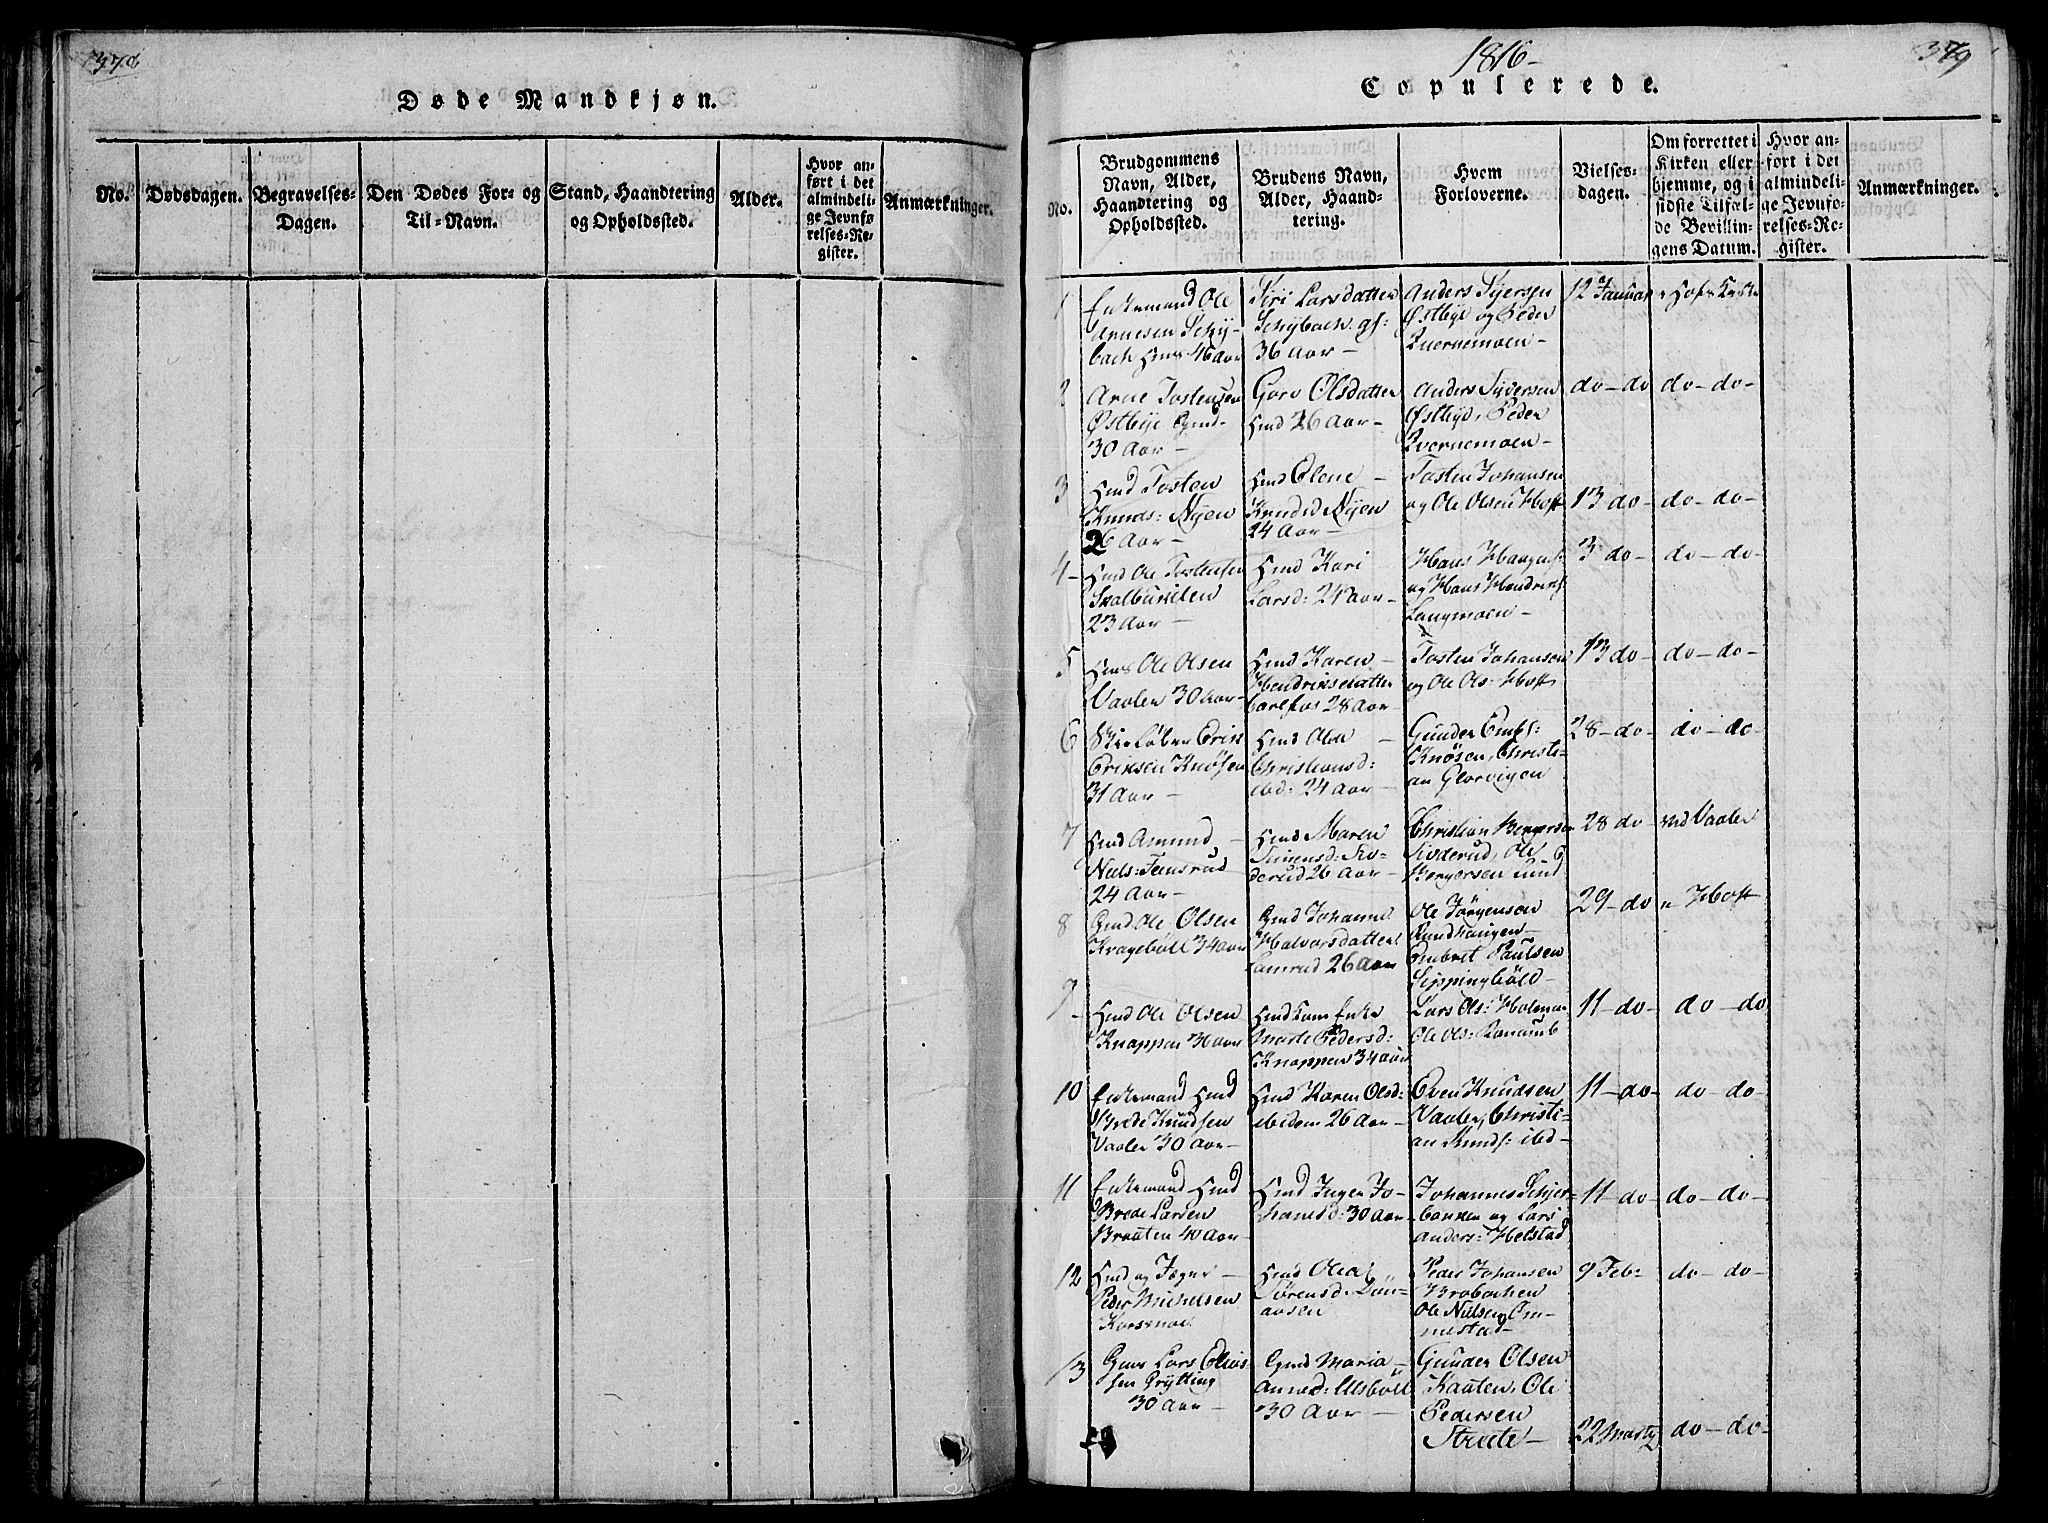 378
Døde Mandkjøn.
No.
Dødsdagen.
Begravelses-
Dagen.
Den Dødes For- og
Til-Navn.
Stand, Haandtering
og Opholdssted.
Alder.
Hvor an-
ført i det
almindeli-
ge Jevnfø
relses-Re-
gister.
Anmærkninger.
1816-
379
Copulerede.
No.
Brudgommens
Navn, Alder,
Haandtering og
Opholdssted.
Brudens Navn,
Alder, Haand-
tering.
Hvem
Forloverne.
Vielses-
dagen.
Om forrettet i
Kirken eller
hjemme, og i
sidste Tilfæl-
de Bevillin-
gens Datum.
Hvor an-
ført i det
almindeli-
ge Jevnfø-
relses-Re-
gister.
Anmærkninger.
1
Enkemand Ole
Arnesen Schy-
bach Hmd 46 Aar
Siri Larsdatter
Schybach gf:
36 Aar -
Anders Syersen
Østbye og Peder
Qvernemoen -
12 Januar
2
Arne Tostensen
Østbye Gmd-
30 Aar -
Goro Olsdatter
Hmd 26 Aar -
Anders Syversen
Østbye, Peder
Qvernemoen -
do - do
do - do -
3
Hmd Tosten
Knuds: Nyen
26 Aar -
Hmd Elene -
Knudsd Nyen
24 Aar -
Tosten Johansen
og Ole Olsen Hoff
13 do -
do - do -
4 -
Hmd Ole Tostensen
23 Aar -
Hmd Kari
Larsd: 24 Aar -
Hans Haagens:
og Hans Hendrichs:
Langmoen -
3 do -
do - do -
5
Hmd Ole Olsen
Vaaler 30 Aar -
Hmd Karen -
Hendriksdatter
28 Aar -
Tosten Johansen
og Ole Ols: Hoff
13 do -
do - do -
6
Erik
Eriksen Knøsen
31 Aar -
Hmd Olea -
Christiansd:
ibd: 24 Aar -
Gunder Embs:
Knøsen, Christi-
an Glorvigen
28 - do -
do - do
7
Hmd Amund -
Niels: Jensrud
24 Aar -
Hmd Maren
Simensd: Sko-
derud 26 Aar -
Christian Bergersen
Skoderud, Ole
Bergersen
28 do -
ved Vaaler
8
Gmd Ole Olsen
Kragebøll 34 Aar
Gmd Johanne
Halvorsdatter
26 Aar
Ole Jørgensen
Rundhaugen -
Embret Paulsen
29 - do
" Hoff
9 -
Hmd Ole Olsen
Knappen 36 Aar
Hmdkone Enke
Marte Pedersd:
Knappen 34 Aar
Lars Ols: Holmen
Ole Ols:
11 - do -
do - do
10
Enkemand Hmd
Brede Knudsen
Vaaler 30 Aar -
Hmd Karen Olsd:
ibidem 26 Aar -
Even Knudsen
Vaaler, Christi-
an Knuds: ibd -
11 - do -
do - do -
11
Enkemand Hmd
Brede Larsen
Braaten 40 Aar -
Hmd Inger Jo-
hansd: 30 Aar -
Johannes Schier-
bakken og Lars
Anders: Helstad
11 - do -
do - do -
12
Hmd og Jæger -
Peder Michelsen
Korsmoe
Hmd Olea
Sørensd:
Peder Johansen
Brobachen
Ole Nielsen Em-
mestad -
9 Feb:
do - do -
13
Gmd Lars Elias
sen Grytting
30 Aar -
Gmd Maria -
Arnesd: Ulsbøll
30 Aar -
Gunder Olsen
Kauten, Ole
Pedersen
Streete -
22 Martz
do - do -